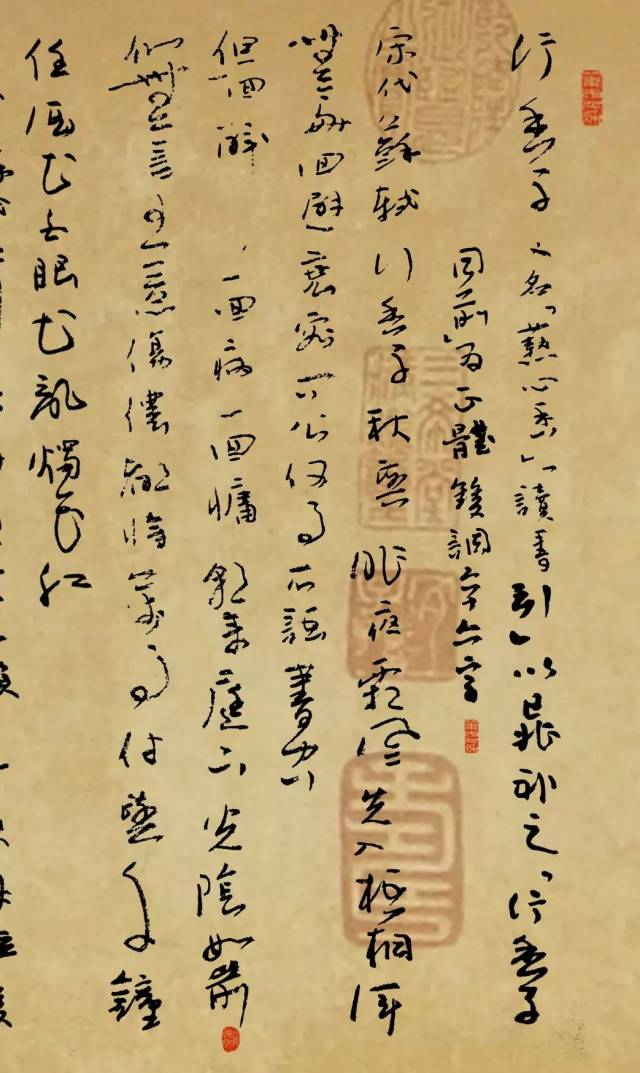 行香子 又名「爇心香」「讀書引」以晁補之「行香子
同前」為正體 雙調六十六字
宋代 蘇軾 行香子 秋興 昨夜霜風 先入梧桐 渾
無處回避衰容 問公何事 不語書空
但一回醉 一回病 一回慵 朝來庭下 光陰如箭
似無言有意傷儂 都將萬事付與千鐘
任酒花白眼花亂燭花紅